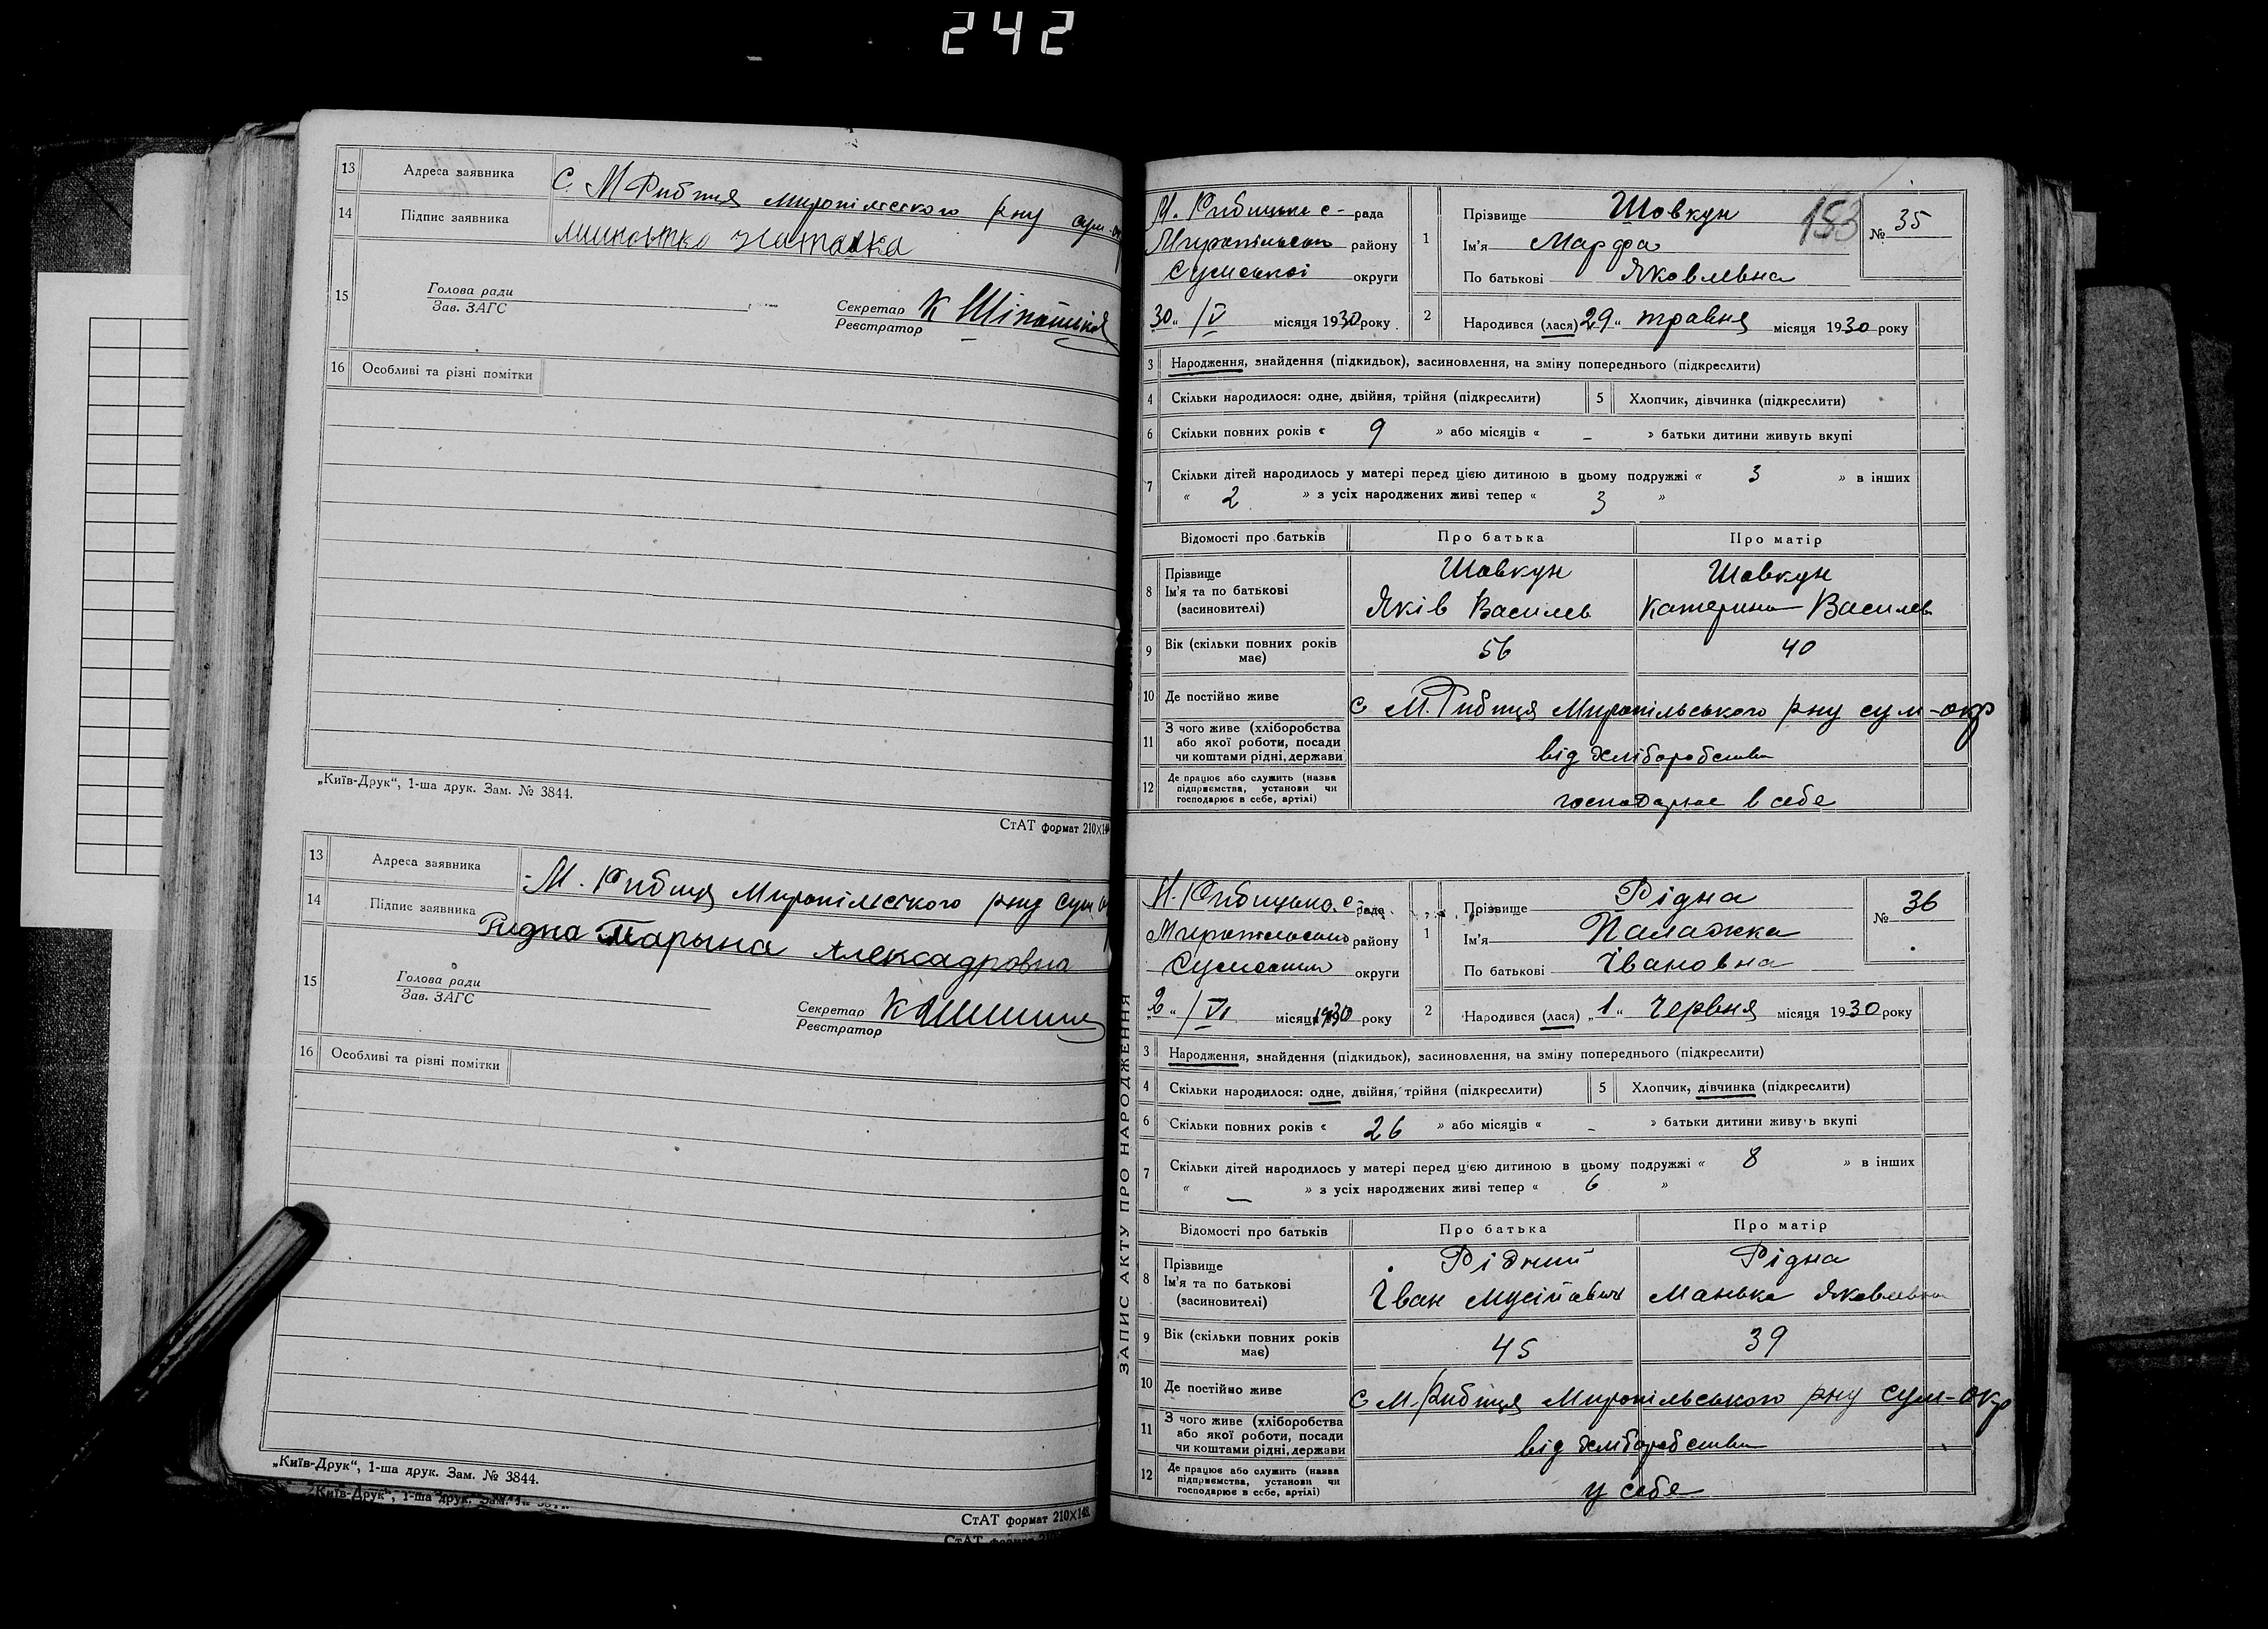 242
13 Адреса заявника С. М Рибиця Миропілського рну сум-
14 Підпис заявника Наталка
15 Голова ради
Зав. ЗАГС
Секретар К
Реєстратор
16 Особливі та різні помітки
„Київ-Друк“, 1-ша друк. Зам. № 3844.
СтАТ формат 210×148
13 Адреса заявника М. Рибиця Миропілського рну сум
14 Підпис заявника Ридна Марына Алексадровна
15 Голова ради
Зав. ЗАГС
Секретар К
Реєстратор
16 Особливі та різні помітки
„Київ-Друк“, 1-ша друк. Зам. № 3844.
„Київ-Друк“, 1-ша друк. Зам.
СтАТ формат 210×148
М. Рибицька с- рада
Миропільськ району
Сумської округи
30 „ /V місяця 1930 року
1 Прізвище Шовкун
Ім'я Марфа
По батькові Яковлевна
183
№ 35
2 Народився (лася) 29 „ травня місяця 1930 року
3 Народження, знайдення (підкидьок), засиновлення, на зміну попереднього (підкреслити)
4 Скільки народилося: одне, двійня, трійня (підкреслити) 5 Хлопчик, дівчинка (підкреслити)
6 Скільки повних років « 9 » або місяців « - » батьки дитини живуть вкупі
7 Скільки дітей народилось у матері перед цією дитиною в цьому подружжі « 3 » в інших
« 2 » з усіх народжених живі тепер « 3 »
Відомості про батьків Про батька Про матір
8 Прізвище Шовкун Шовкун
Ім'я та по батькові
(засиновителі) Яків Василев Катерина Василев
9 Вік (скільки повних років має) 56 40
10 Де постійно живе с М. Рибиця Миропільського рну сум-окр
11 З чого живе (хліборобства
або якої роботи, посади
чи коштами рідні, держави від хліборобства
12 Де працює або служить (назва
підприємства, установи чи
господарює в себе, артілі) господарює в себе
ЗАПИС АКТУ ПРО НАРОДЖЕННЯ
М. Рибицька с- рада
Миропільської району
Сумської округи
2 „ /VI місяця 1930 року
1 Прізвище Рідна
Ім'я Палажка
По батькові Івановна
№ 36
2 Народився (лася) „ 1 „ Червня місяця 1930 року
3 Народження, знайдення (підкидьок), засиновлення, на зміну попереднього (підкреслити)
4 Скільки народилося: одне, двійня, трійня (підкреслити) 5 Хлопчик, дівчинка (підкреслити)
6 Скільки повних років « 26 » або місяців « - » батьки дитини живуть вкупі
7 Скільки дітей народилось у матері перед цією дитиною в цьому подружжі « 8 » в інших
« — » з усіх народжених живі тепер « 6 »
Відомості про батьків Про батька Про матір
8 Прізвище Рідний Рідна
Ім'я та по батькові
(засиновителі) Іван Мусійович Манька Яковлевна
9 Вік (скільки повних років має) 45 39
10 Де постійно живе с М. Рибиця Миропільського рну сум-окр
11 З чого живе (хліборобства
або якої роботи, посади
чи коштами рідні, держави від хліборобства
12 Де працює або служить (назва
підприємства, установи чи
господарює в себе, артілі) у себе